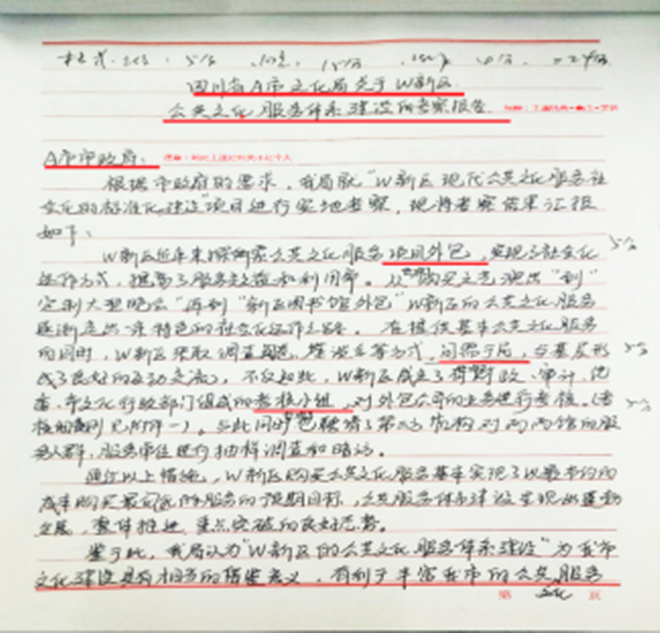 四川省A市文化局关于W新区
公共文化服务体系建设的考察报告
A市市政府：
根据市政府的要求，我局就“W新区现代公共文化服务社
会化的标准化建设”项目进行实地考察，现将考察结果汇报
如下：
W新区近年来探索公共文化服务项目外包，实现了社会化
运作方式，提高了服务效益和利用率。从购买文艺演出“到”
定制大型晚会“再到”新区图书馆外包“W新区的公共文化服务
逐渐走出一条特色的社会化运作之路。在提供基本公共文化服务
的同时，W新区采取调查，座谈会等方式，问需于民，与基层形
成了良好的互动交流。不仅如此，W新区成立了财政、审计、
市文化行政部门组成的考核小组，对外包公司的业务进行考核。（考
核细则见附件一）。与此同时也聘请了第三方机构对两馆的服
务人群，服务单位进行抽样调查和暗访。
通过以上措施，W新区购买公共文化服务基本实现了以最节约的
成本购买最的服务的预期目标，公共服务体系建设呈现出
发展，整体推进，重点突破的良好态势。
鉴于此，我局认为“W新区的公共文化服务体系建设”为我市
文化建设具有相当的借鉴意义，有利于丰富我市的公共服务
文化
第 页